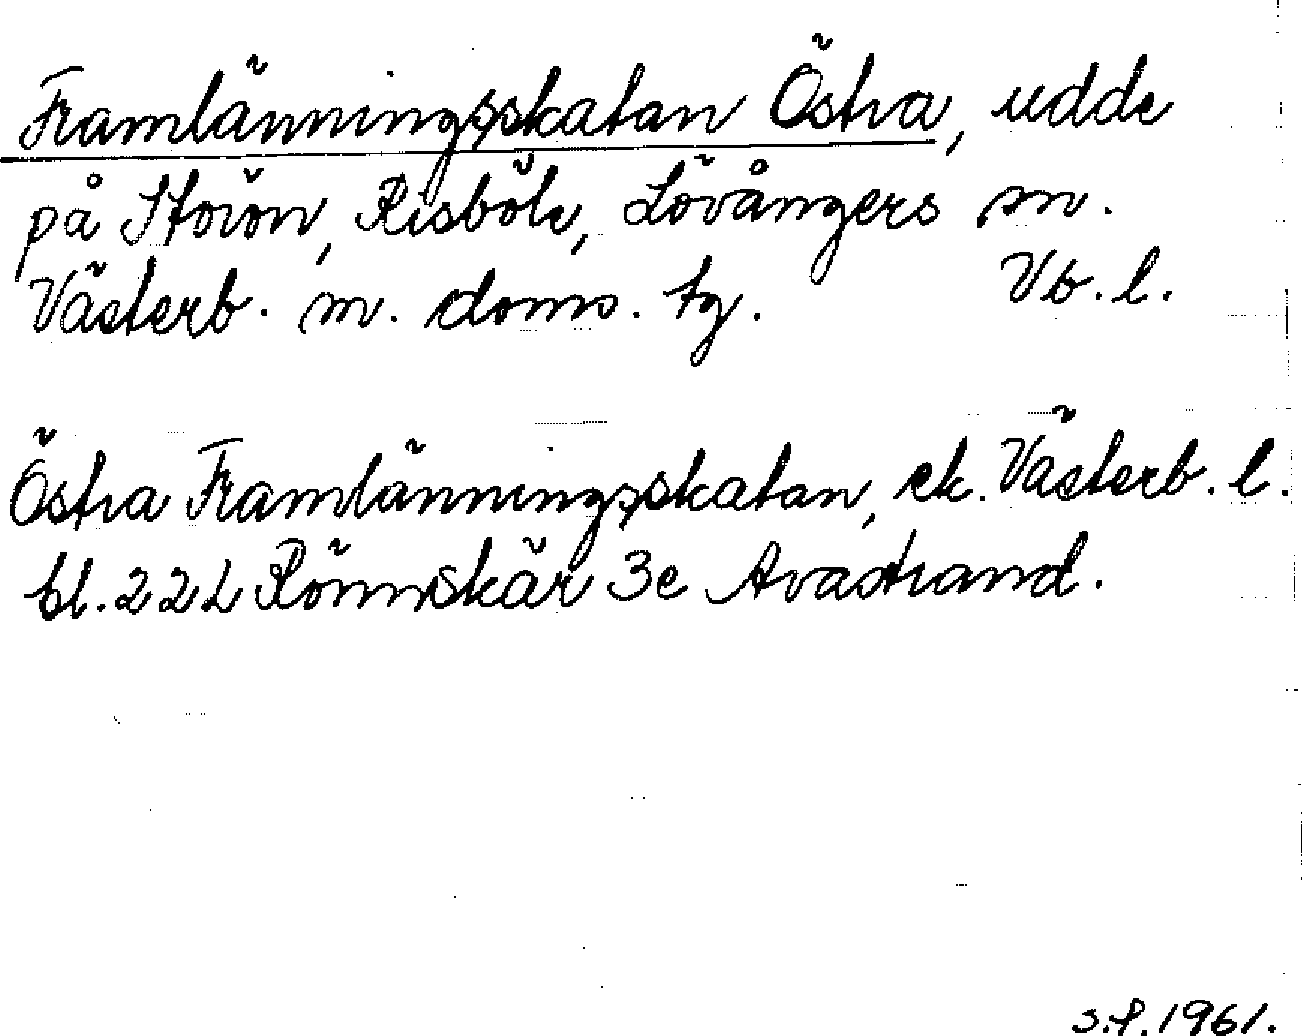 Framlänningsskatan Östra, udde
på Storön, Risböle, Lövångers sn.
Västerb. m. doms. tg. Vb. l.
Östra Framlänningsskatan, ek. Västerb. l.
bl. 22L Rönnskär 3e Avastrand.
S.f. 1961.